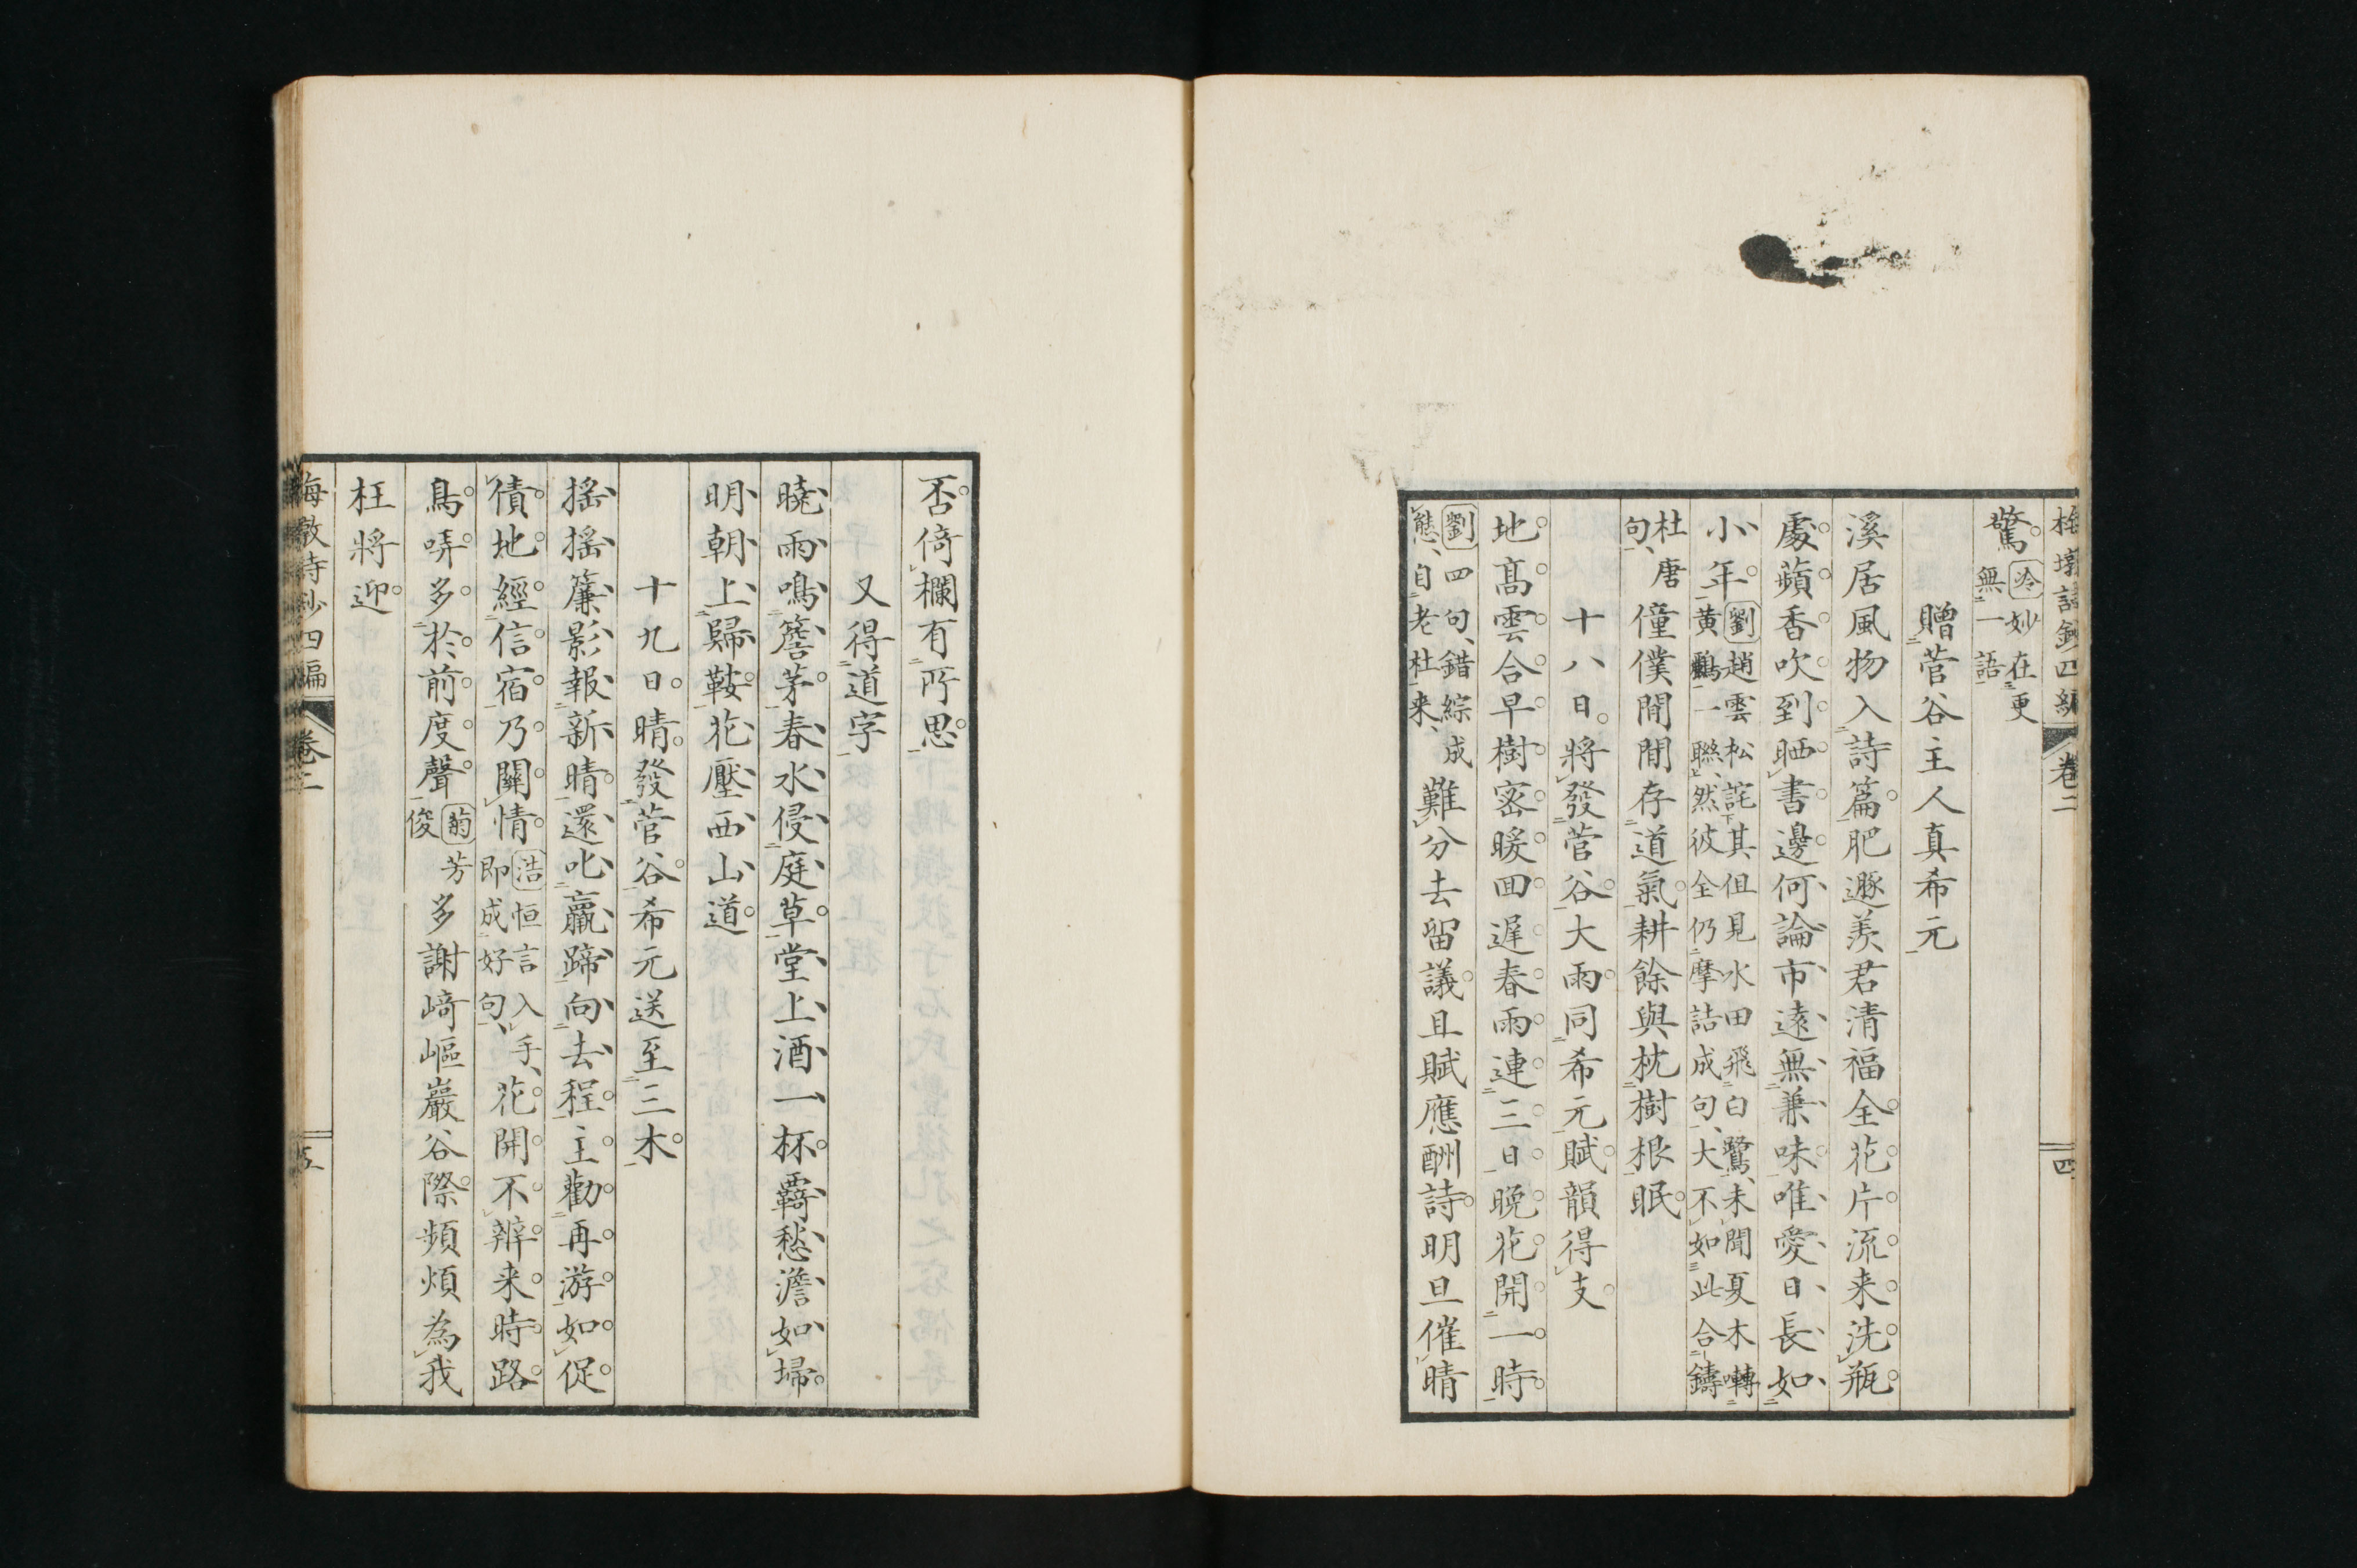 梅墩詩鈔四編 卷二 四
驚 冷 妙在更無一語
贈菅谷主人真希元
溪居風物入詩篇肥遯羨君清福全花片流来洗瓶
處蘋香吹到晒書邊何論市遠無兼味唯愛日長如
小年 劉 趙雲松詫其但見水田飛白鷺未聞夏木囀黄鸝一聯然彼全仍摩詰成句大不如此合鑄
杜唐句 僮僕閒閒存道氣耕餘與枕樹根眠
十八日將發菅谷大雨同希元賦韻得支
地髙雲合早樹宻暖回遲春雨連三日晚花開一時
劉 四句錯綜成態自老杜来 難分去留議且賦應酬詩明旦催晴
否倚欄有所思
又得道字
曉雨鳴簷茅春水侵庭草堂上酒一杯羇愁澹如埽
明朝上歸鞍花壓西山道
十九日晴發菅谷希元送至三木
搖搖簾影報新晴還叱羸蹄向去程主勸再游如促
債地經信宿乃關情 浩 恒言入手即成好句 花開不辨来時路
鳥哢多於前度聲 菊 芳俊 多謝崎嶇巖谷際頻煩為我
枉將迎
梅墩詩鈔四編 卷二 五